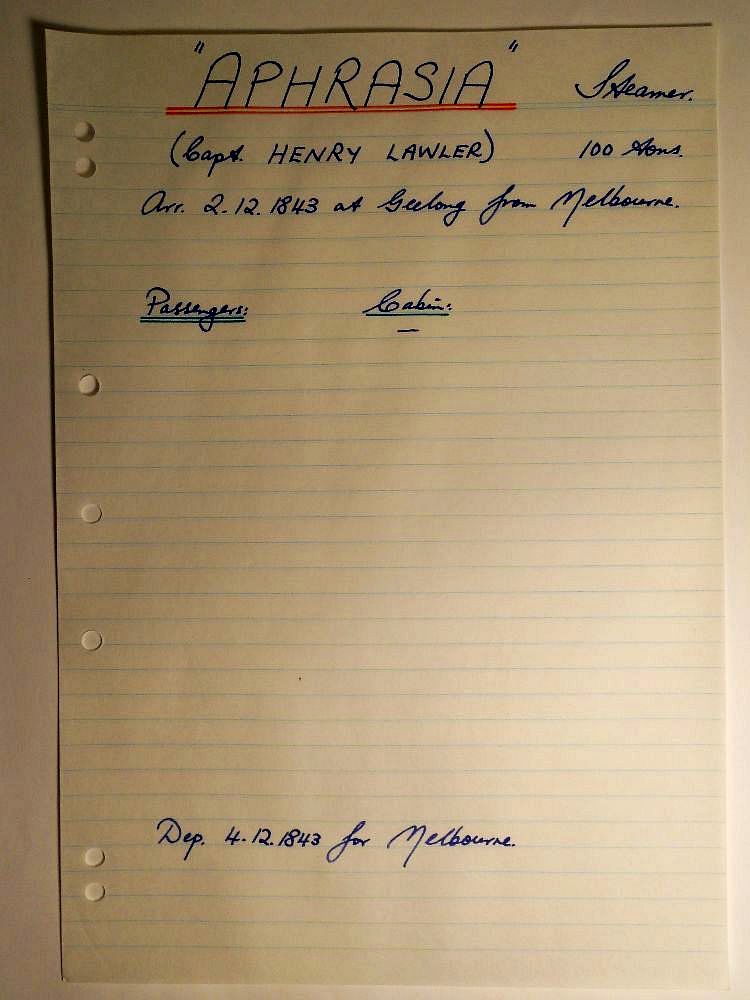 "APHRASIA" Steamer.
(Capt. HENRY LAWLER) 100 tons.
Arr. 2.12.1843 at Geelong from Melbourne.
Passengers: Cabin:
—
Dep. 4.12.1843 for Melbourne.